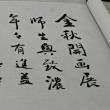 金秋開画展
師生與致濃
年年有進益